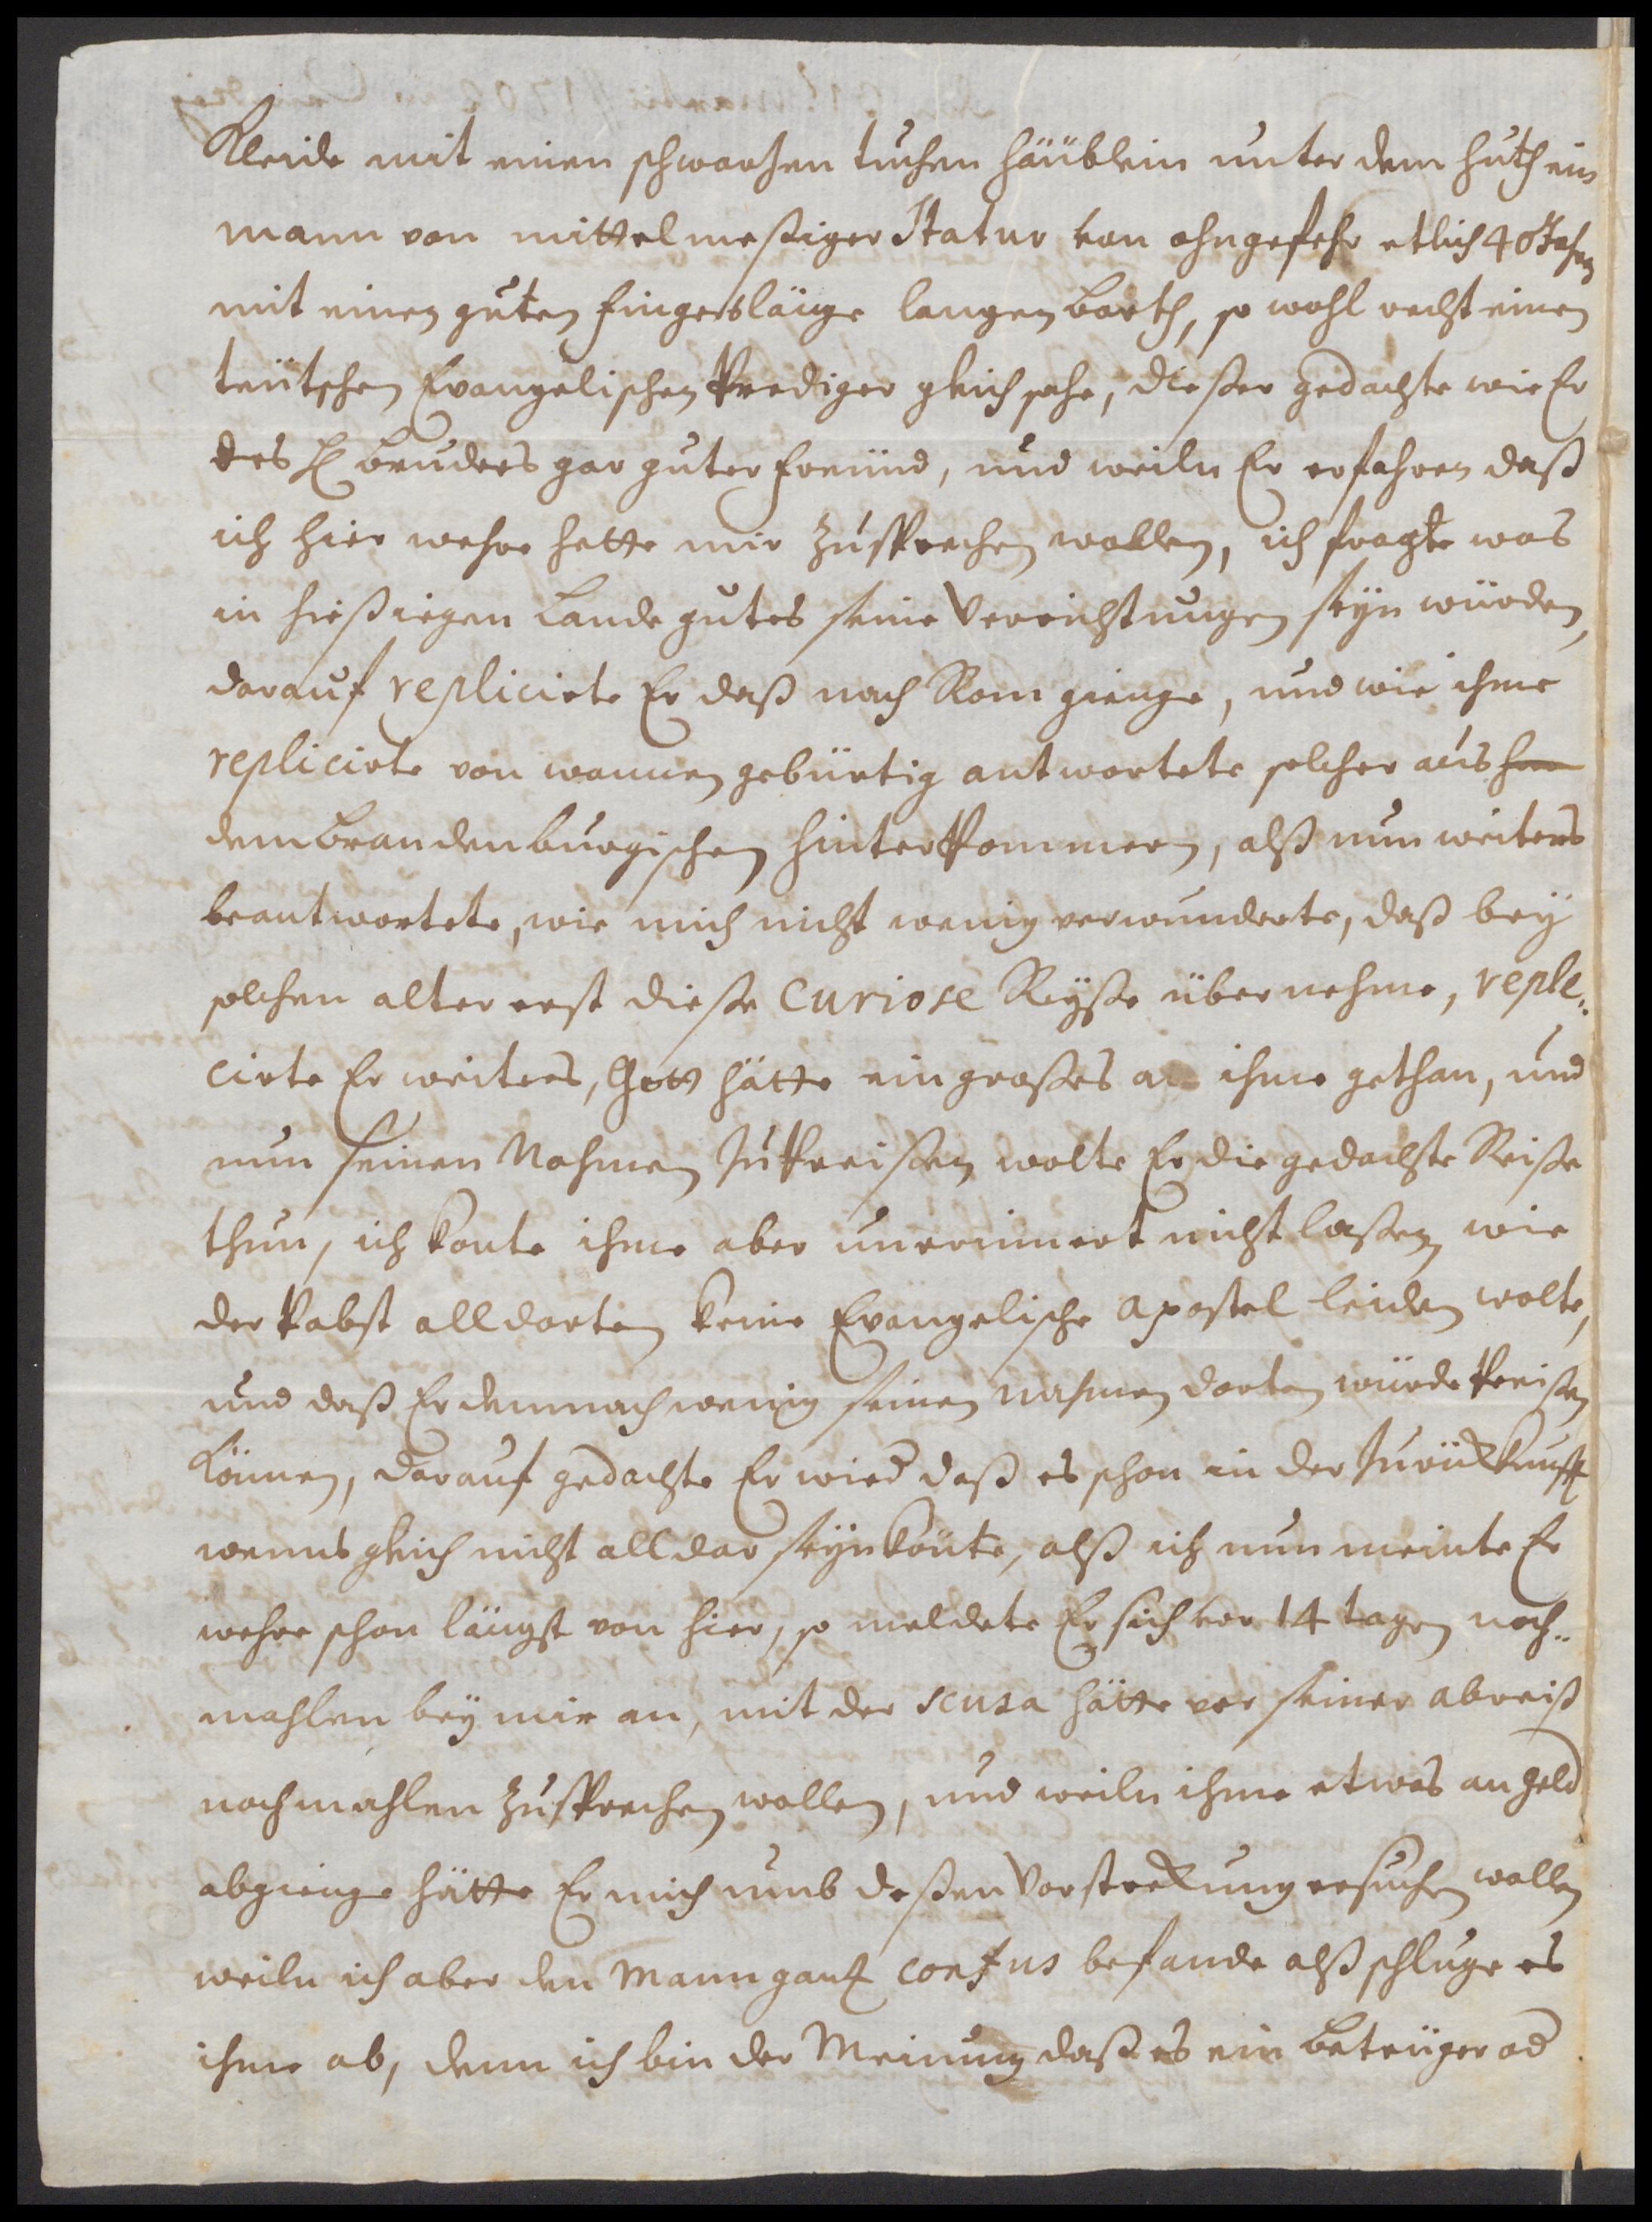 Kleide mit einen schwartzen tuchen häüblein unter dem huth ein
mann von mittelmeßiger Statur von ohngefehr etlich 40 Jahren
mit einen guten fingerslänge langen barth, so wohl recht einen
teütschen Evangelischen Prediger gleich sahe, dießer gedachte wie Er
des H bruders gar guter freünd, und weiln Er erfahren daß
ich hier wehre hette mir zusprechen wollen, ich fragte was
in hießiegen Lande gutes seine Verrichtungen seyn würden,
darauf replicirte Er daß nach Rom gienge, und wie ihme
replicirte von wannen gebürtig antwortete solcher aus
dem brandenburgischen hinter Pommern, alß nun weiters
beantwortete, wie mich nicht wenig verwunderte, daß bey
solchen alter erst dieße curiose Reyße übernehme, reple..
cirte Er weiters, Gott hätte ein großes an ihme gethan, und
nun seinen Nahmen zu Preißen wolte Er die gedachte Reiße
thun, ich konte ihme aber unerinnert nicht laßen wie
der Pabst alldorten keine Evangelische apostel leiden wolte,
und daß Er demnach wenig seinen nahmen dorten würde Preißen
können, darauf gedachte Er wied daß es schon in der Zurückkunfft
wenns gleich nicht alldar seyn könte, alß ich nun meinte Er
wehre schon längst von hier, so meldete Er sich vor 14 tagen noch..
mahlen bey mir an, mit der scusa hätte vor seiner abreiß
nochmahlen zusprechen wollen, und weiln ihme etwas an geld
abgienge hätte Er mich umb deßen Vorstreckung ersuchen wollen
weiln ich aber den Mann gantz confus befande alß schluge es
ihme ab, denn ich bin der Meinung daß es ein betrüger od